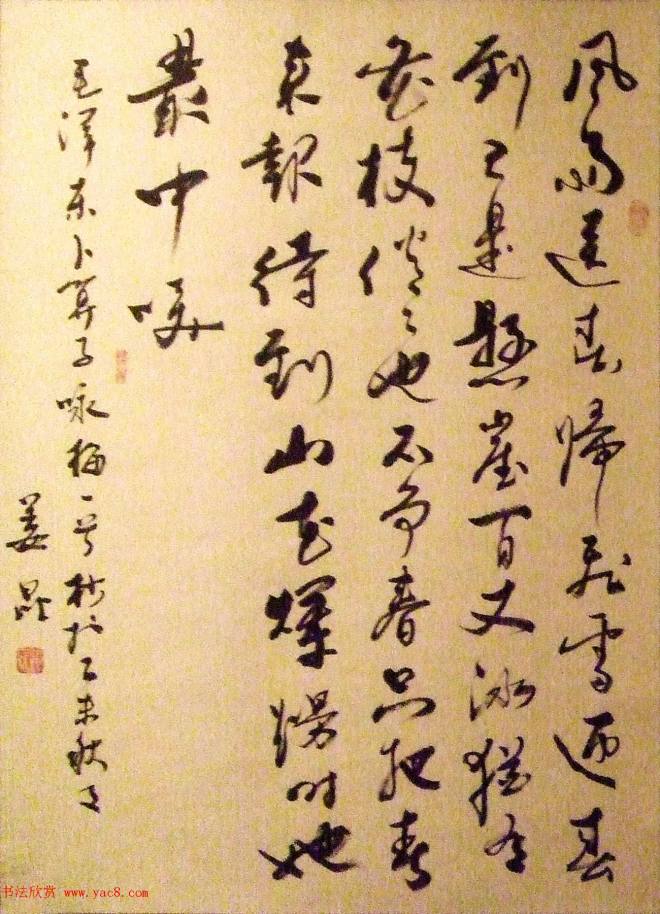 風雨送春歸飛雪迎春
到已是懸崖百丈冰猶有
花枝俏〻也不争春只把春
来報待到山花爛熳时她
叢中咲
毛泽东卜算子咏梅一首 於乙未秋月
姜昆
书法欣赏 www.yac8.com